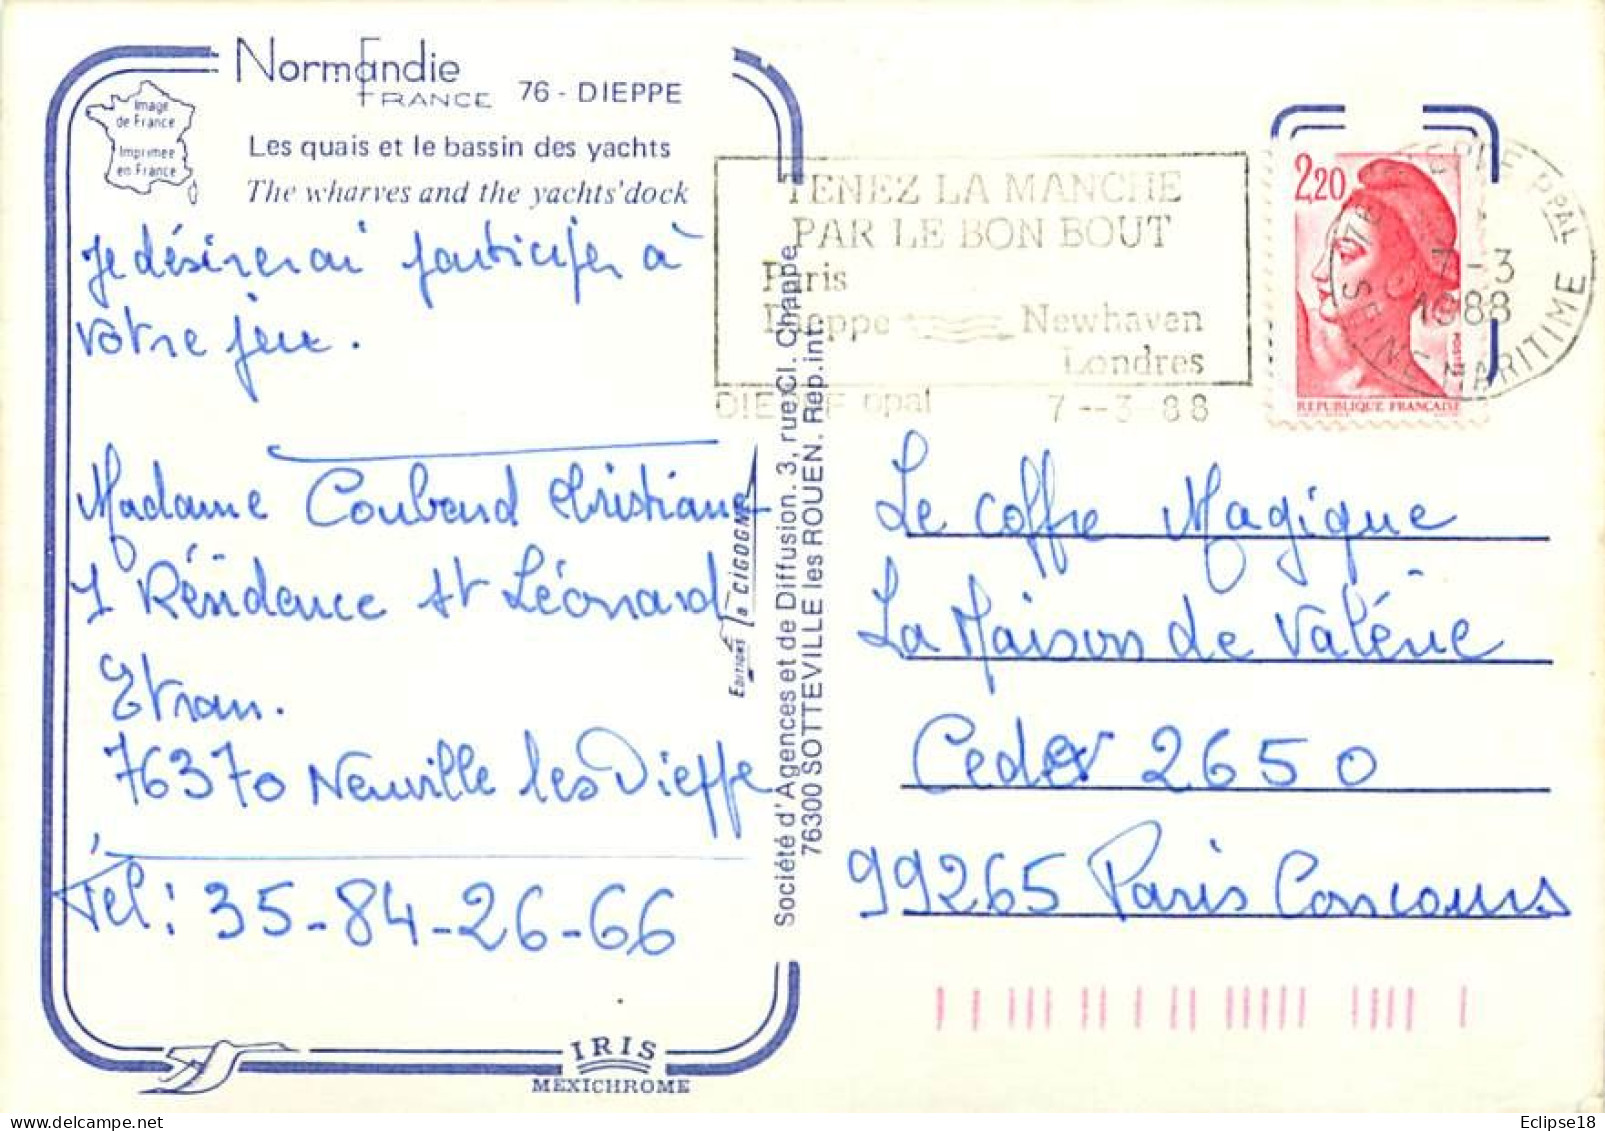 Normandie
FRANCE 76 - DIEPPE
Image
de France
Imprimée
en France
Les quais et le bassin des yachts
The wharves and the yachts' dock
Je désirerai participer à
votre jeu.
Madame Coubard Christiane
1 Résidence St Léonard
Etran.
76370 Neuville les Dieppe
Tel: 35-84-26-66
IRIS
MEXICHROME
EDITIONS la CIGOGNE
Société d'Agences et de Diffusion. 3, rue Cl. Chappe
76300 SOTTEVILLE les ROUEN. Rep.int.
TENEZ LA MANCHE
PAR LE BON BOUT
Paris
Dieppe Newhaven
Londres
DIEPPE ppal 7--3-88
2,20
POSTES
REPUBLIQUE FRANÇAISE
76 DIEPPE PPAL
7-3
1988
SEINE MARITIME
Le coffre Magique
La Maison de Valérie
Cedex 2650
99265 Paris Concours
Eclipse18